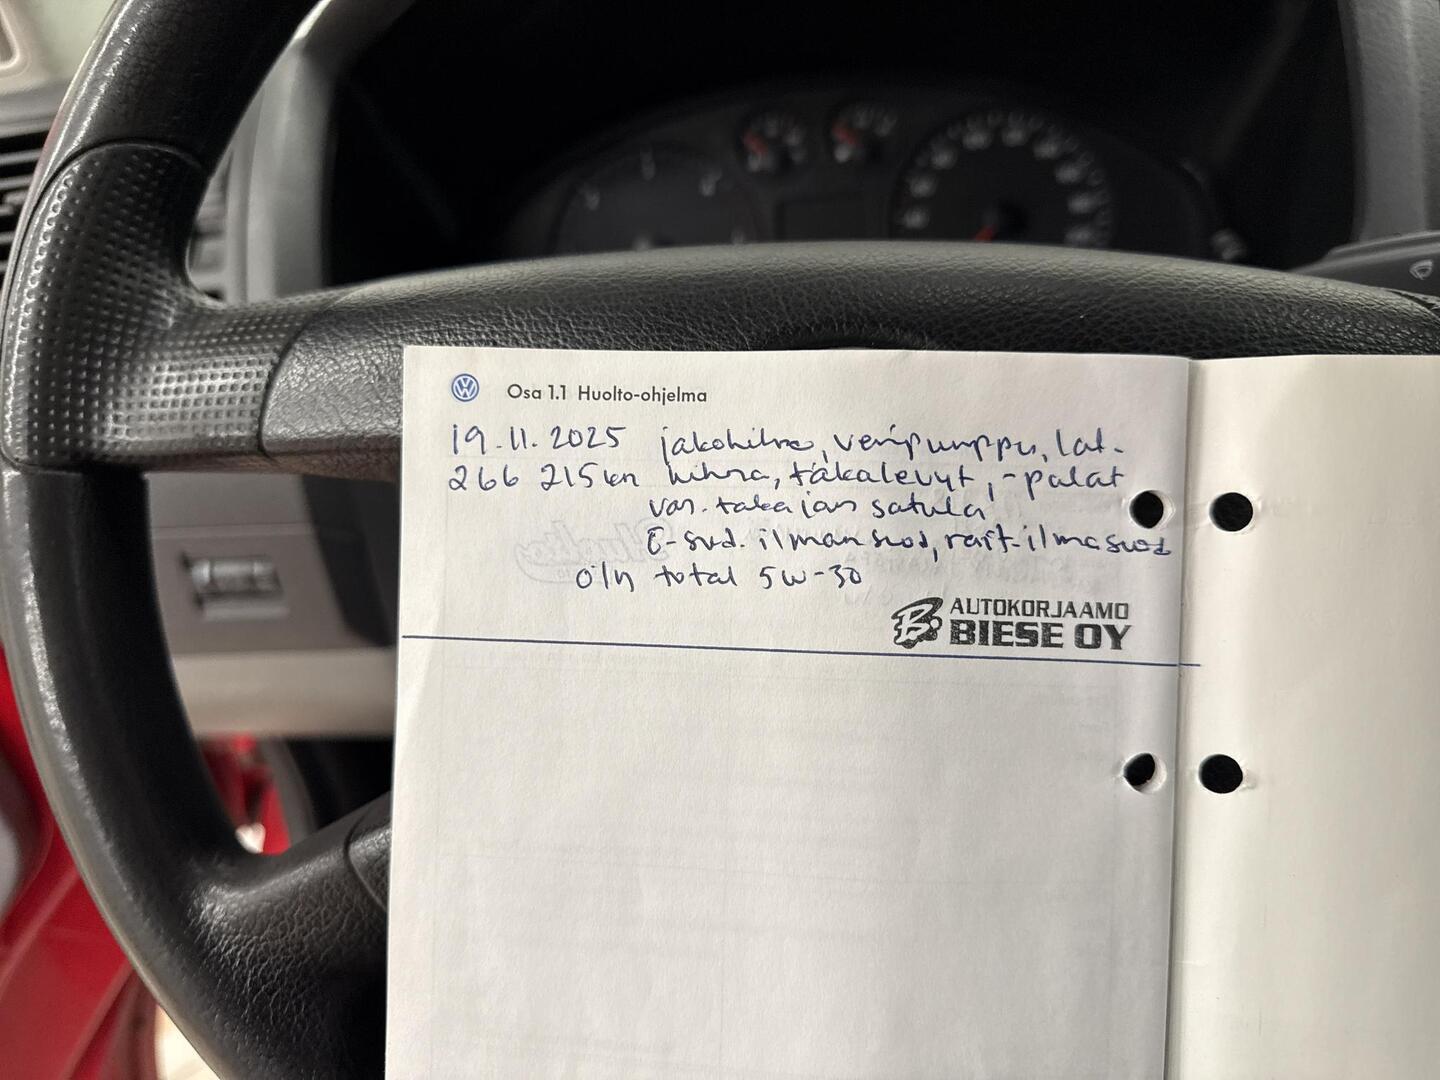 Osa 1.1 Huolto-ohjelma
19.11.2025 jakohihna, vesipumppu, lat-
266 215 km hihna, takalevyt, -palat
vas. takajan satula
ö-sud. ilmansuod, rait.ilmasuod
öljy total 5w-30
AUTOKORJAAMO
BIESE OY